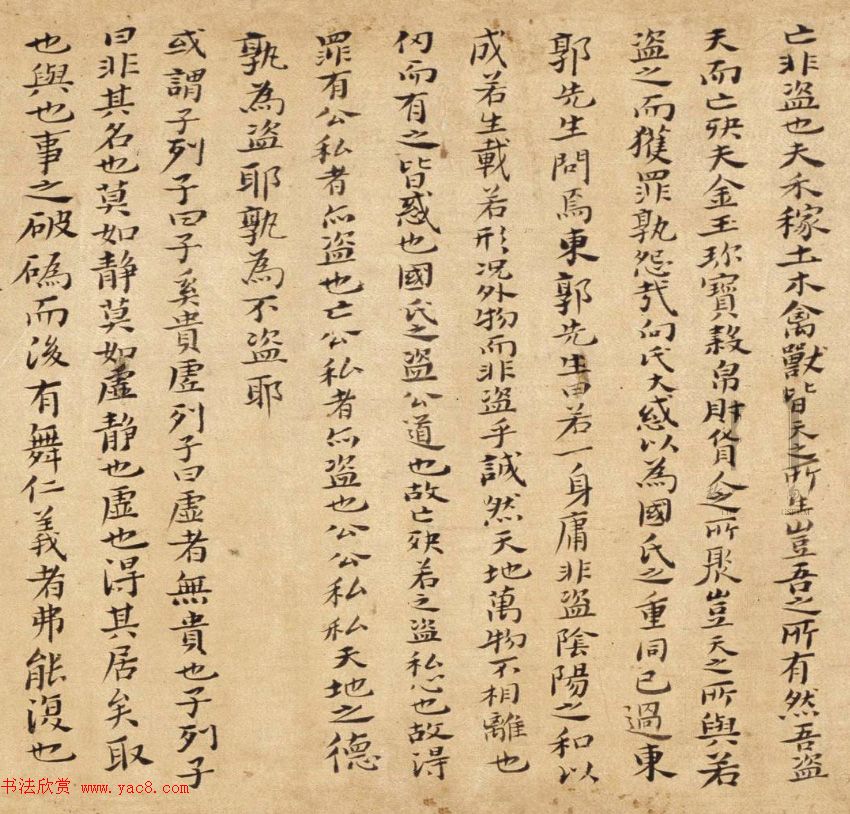 亡非盗也夫禾稼土木禽獸皆天之所生豈吾之所有然吾盗
天而亡殃夫金玉珎寶穀帛財貨人之所聚豈天之所與若
盗之而獲罪孰怨㢤向氏大惑以為國氏之重罔已過東
郭先生問焉東郭先生曰若一身庸非盗陰陽之和以
成若生載若形况外物而非盗乎誠然天地萬物不相離也
仞而有之皆惑也國氏之盗公道也故亡殃若之盗私心也故得
罪有公私者亦盗也亡公私者亦盗也公公私私天地之德
孰為盗耶孰為不盗耶
或謂子列子曰子奚貴虛列子曰虛者無貴也子列子
曰非其名也莫如静莫如虛静也虛也得其居矣取
也與也事之破䃣而後有舞仁義者弗能復也
书法欣赏 www.yac8.com